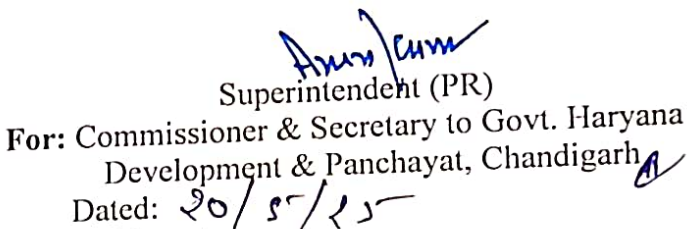 Superintendent (PR)
For: Commissioner & Secretary to Govt. Haryana
Development & Panchayat, Chandigarh
Dated: 20/5/25